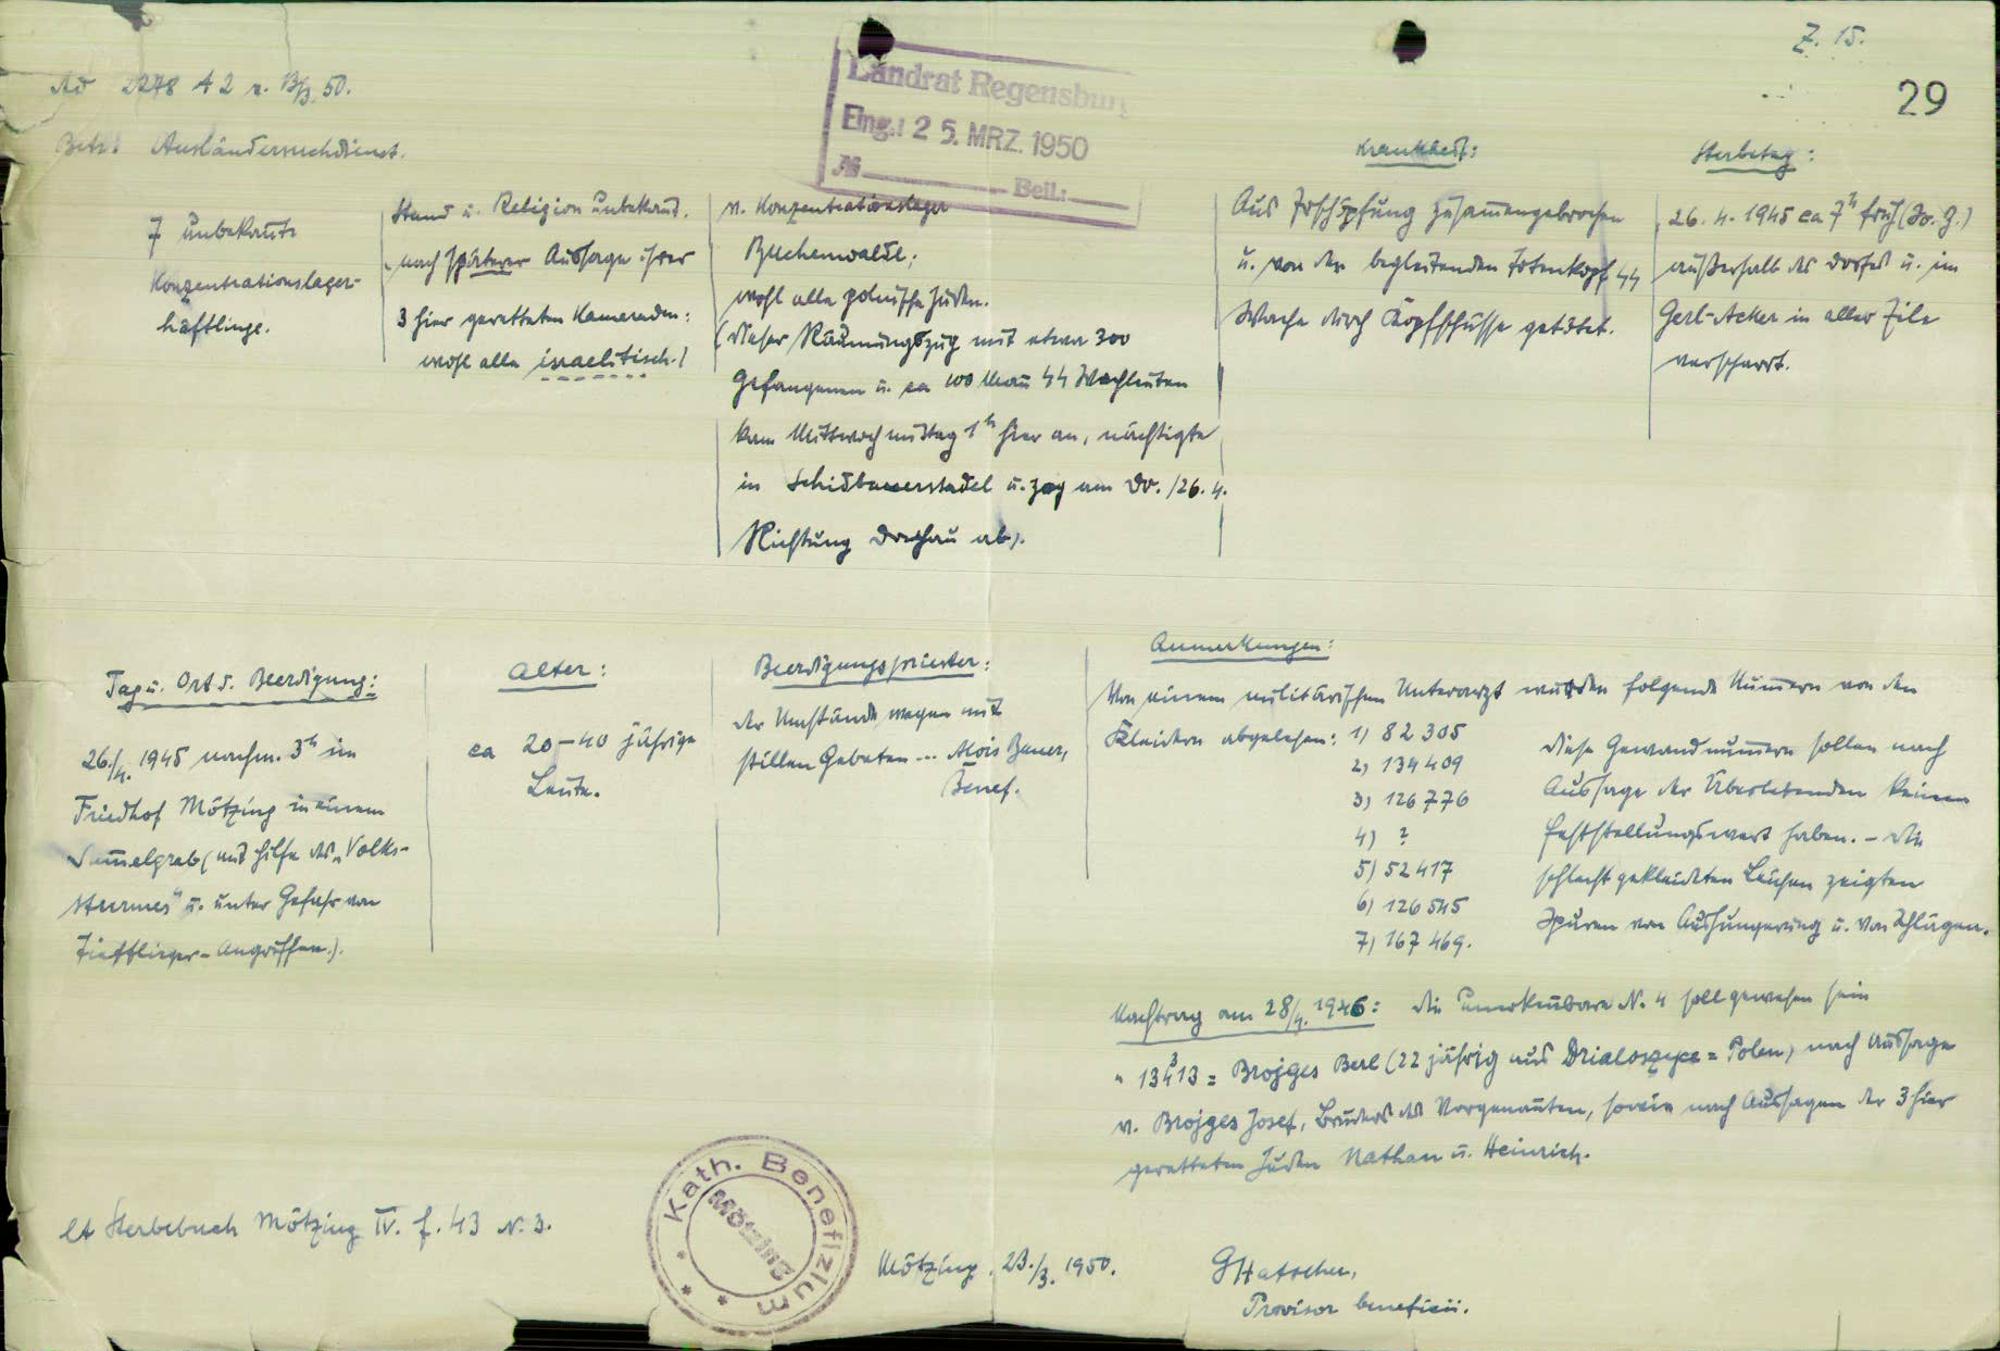 Z. 15.
29
Ad 2278 A 2 v. 13/3. 50.
Betr! Ausländersuchdienst.
Landrat Regensburg
Eing.: 25. MRZ. 1950
№ Beil.:
7 unbekannte
Konzentrationslager-
häftlinge.
Stand u. Religion unbekannt.
nach späterer Aussage ihrer
3 hier geretteten Kameraden:
wohl alle israelitisch.)
v. Konzentrationslager
Buchenwalde;
wohl alle polnische Juden.
(Dieser Räumungszug mit etwa 300
Gefangenen u. ca 100 Mann SS Wachleuten
kam Mittwoch mittag 1h hier an, nächtigte
in Schidbauerstadel u. zog am Do. /26. 4.
Richtung Dachau ab).
Krankheit:
Aus Erschöpfung zusammengebrochen
u. von der begleitenden Totenkopf SS
Wache durch Kopfschüsse getötet.
Sterbetag:
26. 4. 1945 ca 7h früh (So. Z.)
außerhalb des Dorfes u. im
Gerl-Acker in aller Eile
verscharrt.
Tag u. Ort d. Beerdigung:
26./4. 1945 nachm. 3h im
Friedhof Mötzing in einem
Sammelgrab (mit Hilfe des „Volks-
sturmes" u. unter Gefahr von
Tiefflieger-Angriffen.).
Alter:
ca 20-40 jährige
Leute.
Beerdigungspriester:
der Umstände wegen mit
stillen Gebeten ... Alois Bauer,
Benef.
Anmerkungen:
Von einem militärischen Unterarzt wurden folgende Nummern von den
Kleidern abgelesen: 1) 82 305
2) 134 409
3) 126 776
4) ?
5) 52 417
6) 126 545
7) 167 469.
Diese Gewandnummern sollen nach
Aussage der Überlebenden keinen
Feststellungswert haben. - Die
schlecht gekleideten Leichen zeigten
Spuren von Aushungerung u. von Schlägen.
Nachtrag am 28/4. 1946: die unerkennbare N. 4 soll gewesen sein
" 13413 = Brojges Berl (22 jährig aus Dzialoszyce = Polen) nach Aussage
3
v. Brojges Josef, Bruders des Vorgenannten, sowie nach Aussagen der 3 hier
geretteten Juden Nathan u. Heinrich.
lt Sterbebuch Mötzing IV. f. 43 N. 3.
Kath. Benefizium
Mötzing
Mötzing, 23./3. 1950.
Provisor beneficii.